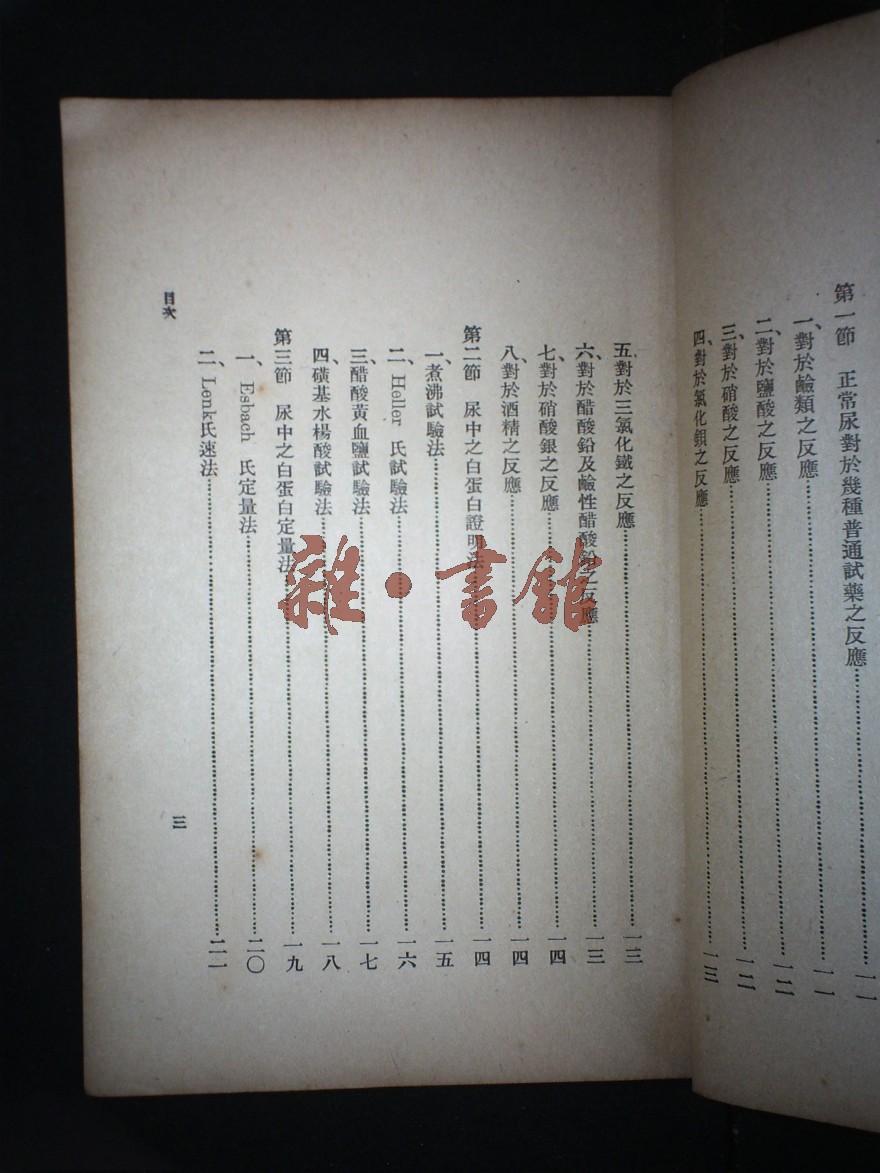 第一節 正常尿對於幾種普通試藥之反應……一一
一、對於鹼類之反應……一一
二、對於鹽酸之反應……一二
三、對於硝酸之反應……一二
四、對於氯化鋇之反應……一三
五、對於三氯化鐵之反應……一三
六、對於醋酸鉛及鹼性醋酸鉛之反應……一三
七、對於硝酸銀之反應……一四
八、對於酒精之反應……一四
第二節 尿中之白蛋白證明法……一四
一、煮沸試驗法……一五
二、Heller 氏試驗法……一六
三、醋酸黃血鹽試驗法……一七
四、磺基水楊酸試驗法……一八
第三節 尿中之白蛋白定量法……一九
一、Esbach 氏定量法……二〇
二、Lenk氏速法……二一
目次
三
雜·書館